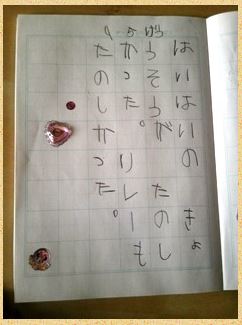 はいはいの きょ
うそうが たのし
かった。 リレーも
たのしかった。